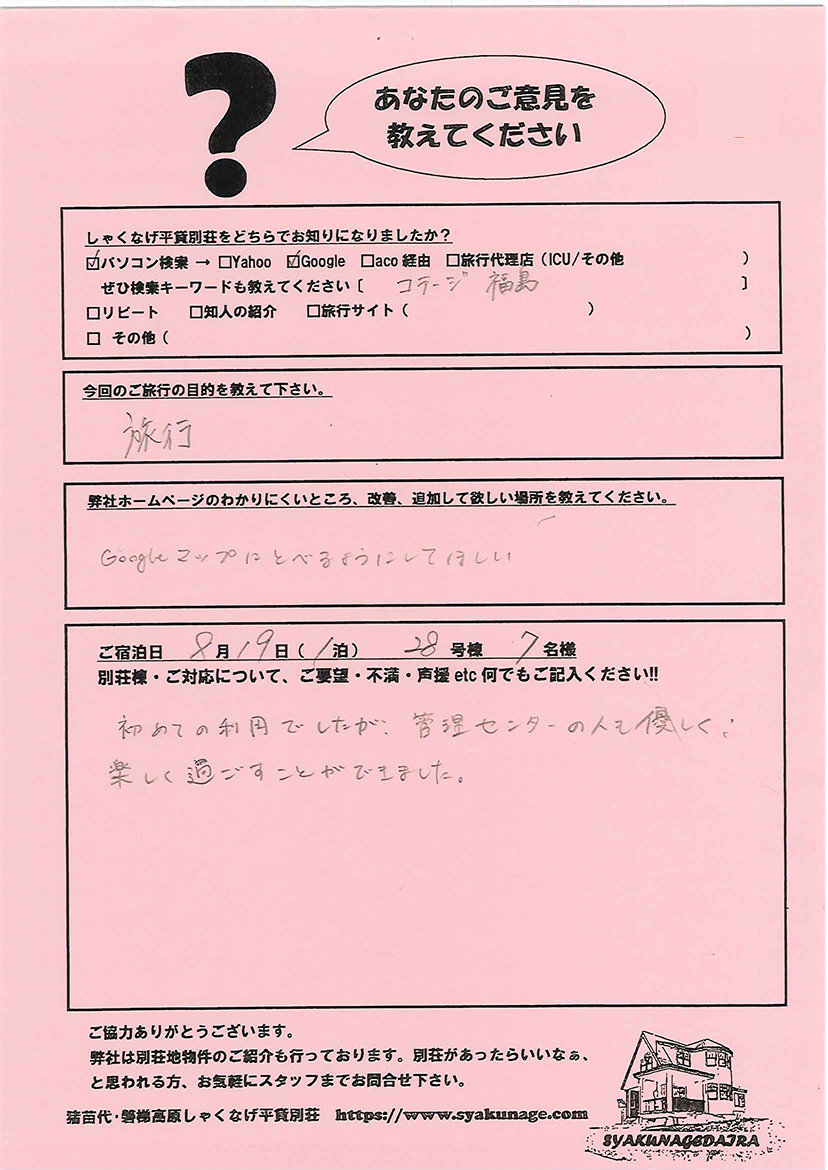 ?
あなたのご意見を
教えてください
しゃくなげ平貸別荘をどちらでお知りになりましたか？
☑パソコン検索 → □Yahoo ☑Google □aco 経由 □旅行代理店（ICU/その他 ）
ぜひ検索キーワードも教えてください［ コテージ 福島 ］
□リピート □知人の紹介 □旅行サイト（ ）
□ その他（ ）
今回のご旅行の目的を教えて下さい。
旅行
弊社ホームページのわかりにくいところ、改善、追加して欲しい場所を教えてください。
Googleマップにとべるようにしてほしい
ご宿泊日 8月19日（1泊） 28号棟 7名様
別荘棟・ご対応について、ご要望・不満・声援 etc 何でもご記入ください!!
初めての利用でしたが、管理センターの人も優しく、
楽しく過ごすことができました。
ご協力ありがとうございます。
弊社は別荘地物件のご紹介も行っております。別荘があったらいいなぁ、
と思われる方、お気軽にスタッフまでお問合せ下さい。
猪苗代・磐梯高原しゃくなげ平貸別荘 https://www.syakunage.com
SYAKUNAGEDAIRA